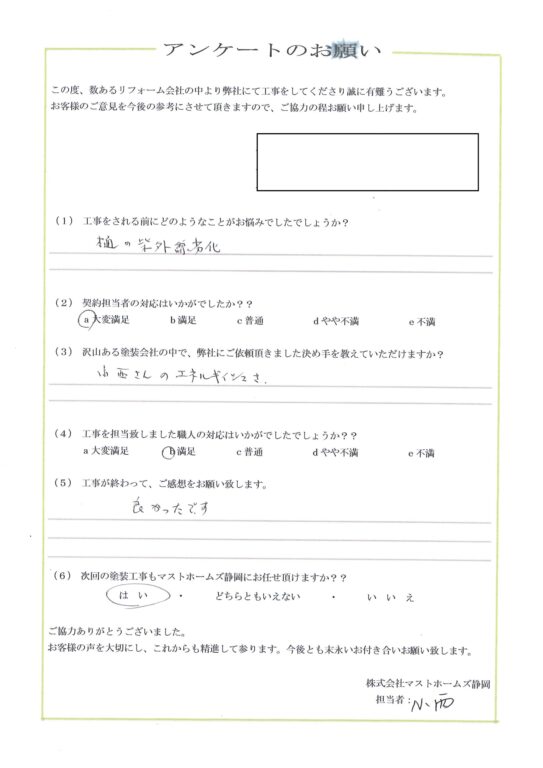 アンケートのお願い
この度、数あるリフォーム会社の中より弊社にて工事をしてくださり誠に有難うございます。
お客様のご意見を今後の参考にさせて頂きますので、ご協力の程お願い申し上げます。
(1) 工事をされる前にどのようなことがお悩みでしたでしょうか?
の紫外線劣化
(2) 契約担当者の対応はいかがでしたか??
a大変満足 b満足 c普通 dやや不満 e不満
(3) 沢山ある塗装会社の中で、弊社にご依頼頂きました決め手を教えていただけますか?
小西さんのエネルギッシュさ.
(4) 工事を担当致しました職人の対応はいかがでしたでしょうか??
a大変満足 b満足 c普通 dやや不満 e不満
(5) 工事が終わって、ご感想をお願い致します。
良かったです
(6) 次回の塗装工事もマストホームズ静岡にお任せ頂けますか??
はい ・ どちらともいえない ・ いいえ
ご協力ありがとうございました。
お客様の声を大切にし、これからも精進して参ります。今後とも末永いお付き合いお願い致します。
株式会社マストホームズ静岡
担当者:小西